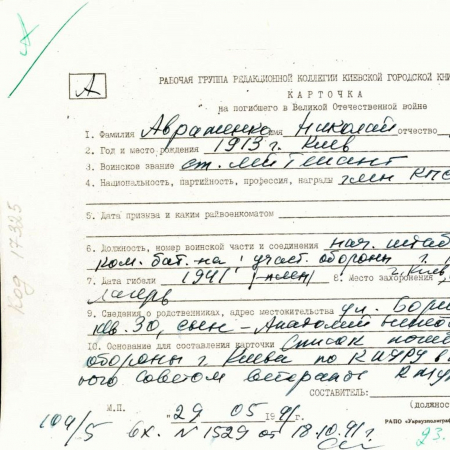 А
РАБОЧАЯ ГРУППА РЕДАКЦИОННОЙ КОЛЛЕГИИ КИЕВСКОЙ ГОРОДСКОЙ КНИ
КАРТОЧКА
на погибшего в Великой Отечественной войне
1. Фамилия Авраменко имя Николай отчество
2. Год и место рождения 1913 г. Киев
3. Воинское звание ст. лейтенант
4. Национальность, партийность, профессия, награды член КПС
5. Дата призыва и каким райвоенкоматом
6. Должность, номер воинской части и соединения нач. штаб
ком. бат. на 1 участ. обороны г.
7. Дата гибели 1941 - плен 8. Место захоронения г. Киев
лагерь
9. Сведения о родственниках, адрес местожительства ул.
кв. 30, сын - Анатолий
10. Основание для составления карточки Список
обороны г. Киева по КиУРу
ного Советом ветеранов
СОСТАВИТЕЛЬ:
(должнос
М.П. "29 05 1991
РАПО «Укрвузполиграф
109/5 вх. N 1529 от 18.10.91 г.
23.
Код 17325